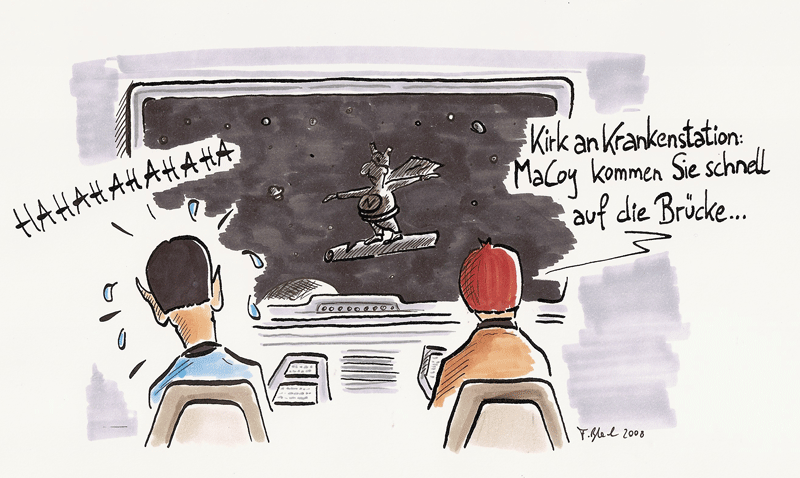 HAHAHAHAHAHAHA
Kirk an Krankenstation:
MaCoy kommen Sie schnell
auf die Brücke...
2008